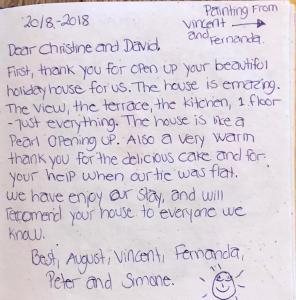 20/8.-2018
Painting From
Vincent
and
Fernanda.
Dear Christine and David.
First, thank you for open up your beautiful
holidayhouse for us. The house is emazing.
The view, the terrace, the kitchen, 1. floor
- just everything. The house is like a
Pearl opening up. Also a very warm
thank you for the delicious cake and for
your help when our tie was flat.
we have enjoy our stay, and will
recomend your house to everyone we
know.
Best, August, Vincent, Fernanda,
Peter and Simone.